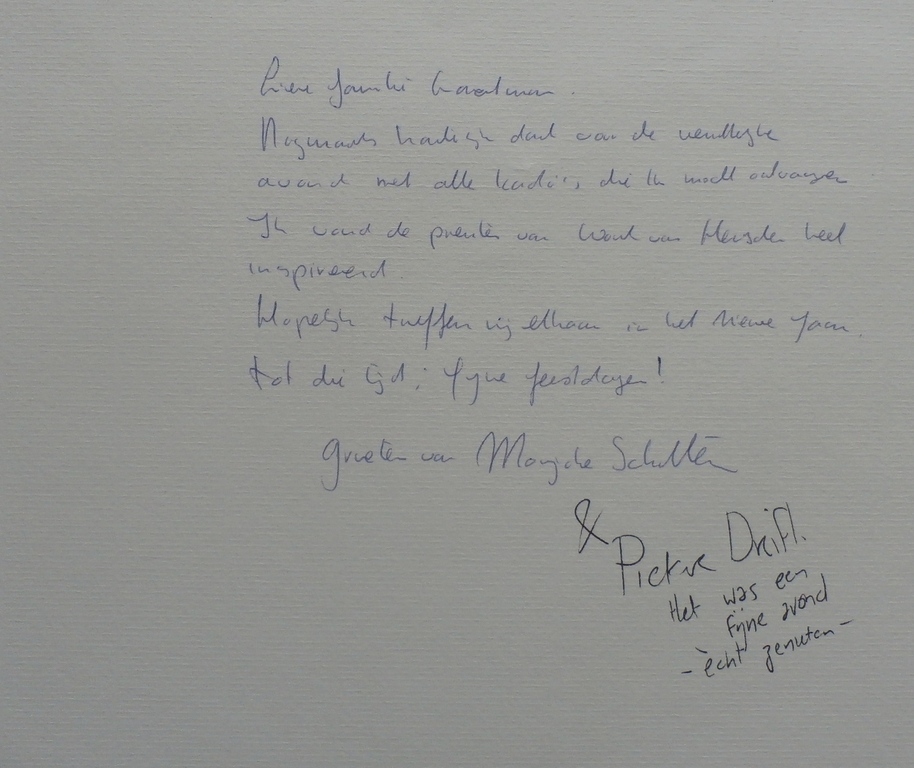 Lieve familie
Nogmaals hartelijk dank voor de vriendelijke
avond met alle kado's, die ik mocht ontvangen
Ik vond de prenten van van Heusden heel
inspirerend.
Hopelijk treffen wij elkaar in het nieuwe jaar.
Tot die tijd; fijne feestdagen!
groeten van Marijke Scholten
&
Pieter
Het was een
fijne avond
- echt genieten -